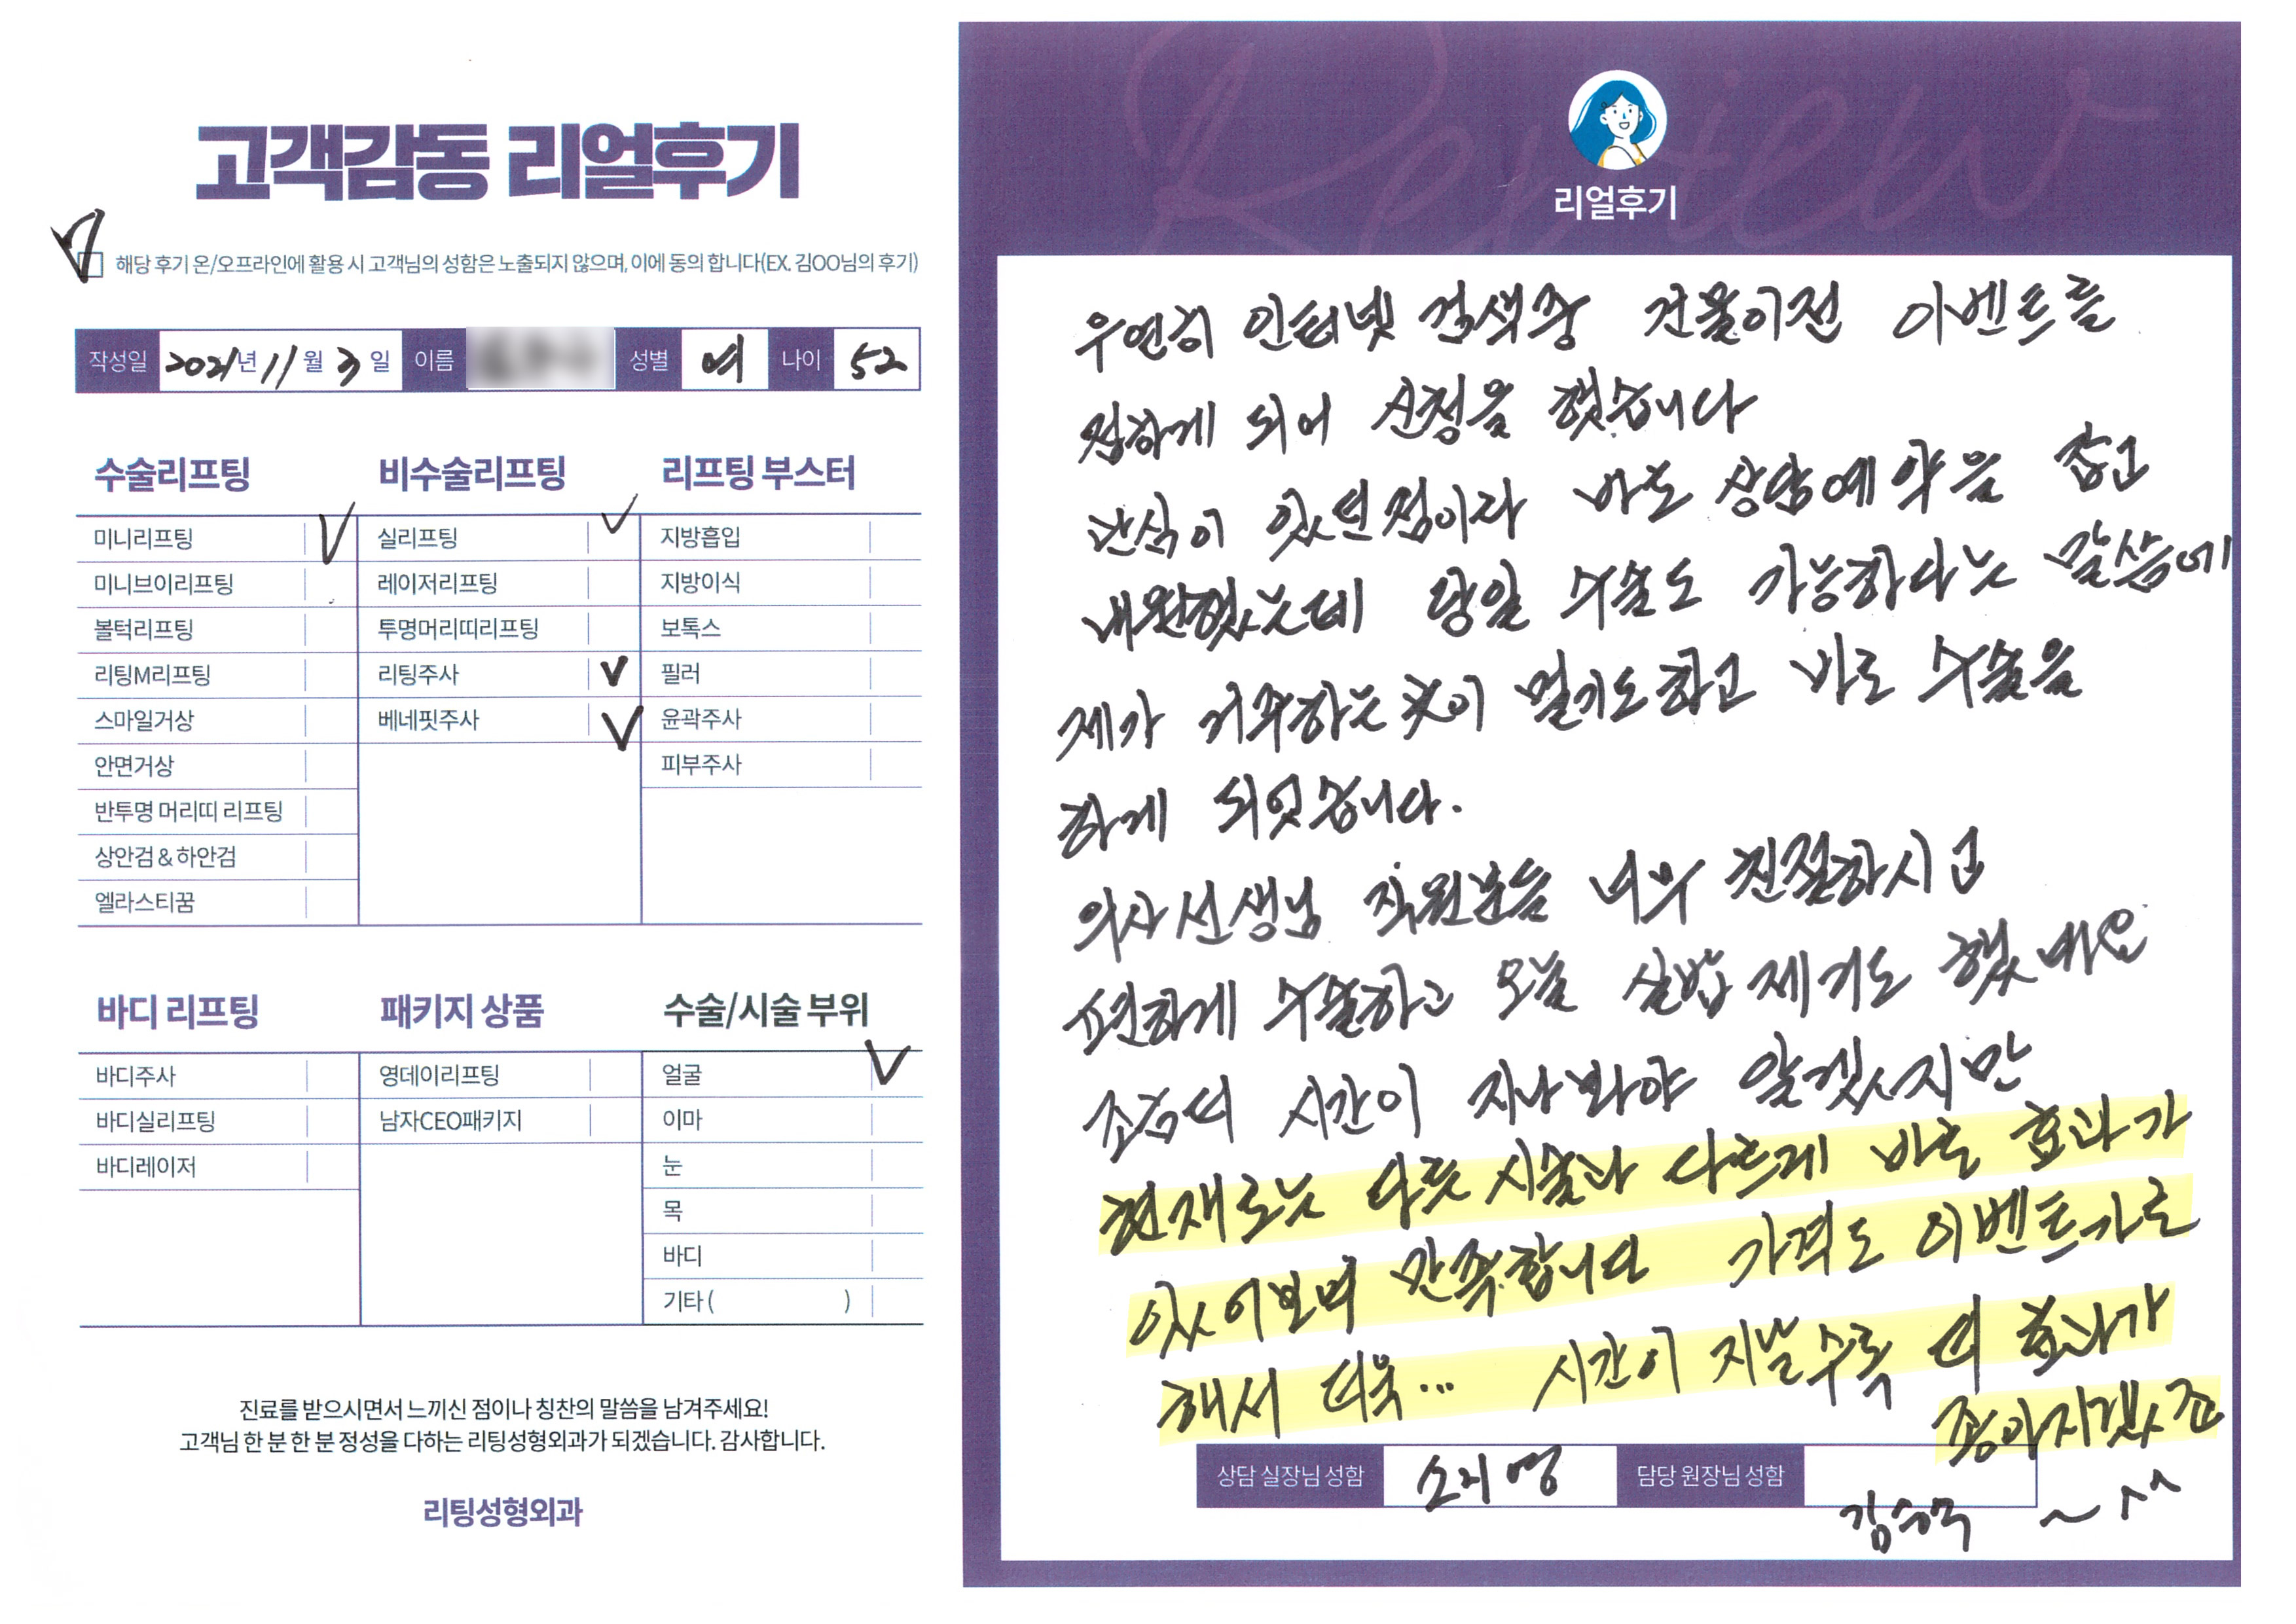 고객감동 리얼후기
해당 후기 온/오프라인에 활용 시 고객님의 성함은 노출되지 않으며, 이에 동의 합니다(EX. 김OO님의 후기)
작성일 2021년 11월 3일 이름 성별 여 나이 52
수술리프팅
미니리프팅
미니브이리프팅
볼턱리프팅
리팅M리프팅
스마일거상
안면거상
반투명 머리띠 리프팅
상안검 & 하안검
엘라스티꿈
비수술리프팅
실리프팅
레이저리프팅
투명머리띠리프팅
리팅주사
베네핏주사
리프팅 부스터
지방흡입
지방이식
보톡스
필러
윤곽주사
피부주사
바디 리프팅
바디주사
바디실리프팅
바디레이저
패키지 상품
영데이리프팅
남자CEO패키지
수술/시술 부위
얼굴
이마
눈
목
바디
기타 ( )
진료를 받으시면서 느끼신 점이나 칭찬의 말씀을 남겨주세요!
고객님 한 분 한 분 정성을 다하는 리팅성형외과가 되겠습니다. 감사합니다.
리팅성형외과
Review
리얼후기
우연히 인터넷 검색중 건물이전 이벤트를
접하게 되어 신청을 했습니다
관심이 있던점이라 바로 상담예약을 잡고
내원했는데 당일 수술도 가능하다는 말씀에
제가 거주하는곳이 멀기도하고 바로 수술을
하게 되었습니다.
의사선생님 직원분들 너무 친절하시고
편하게 수술하고 오늘 실밥제거도 했네요
조금더 시간이 지나봐야 알겠지만
현재로는 다른 시술과 다르게 바로 효과가
있어보여 만족합니다 가격도 이벤트가로
해서 더욱... 시간이 지날수록 더 효과가
좋아지겠죠
상담 실장님 성함 소지영 담당 원장님 성함
~ ^^